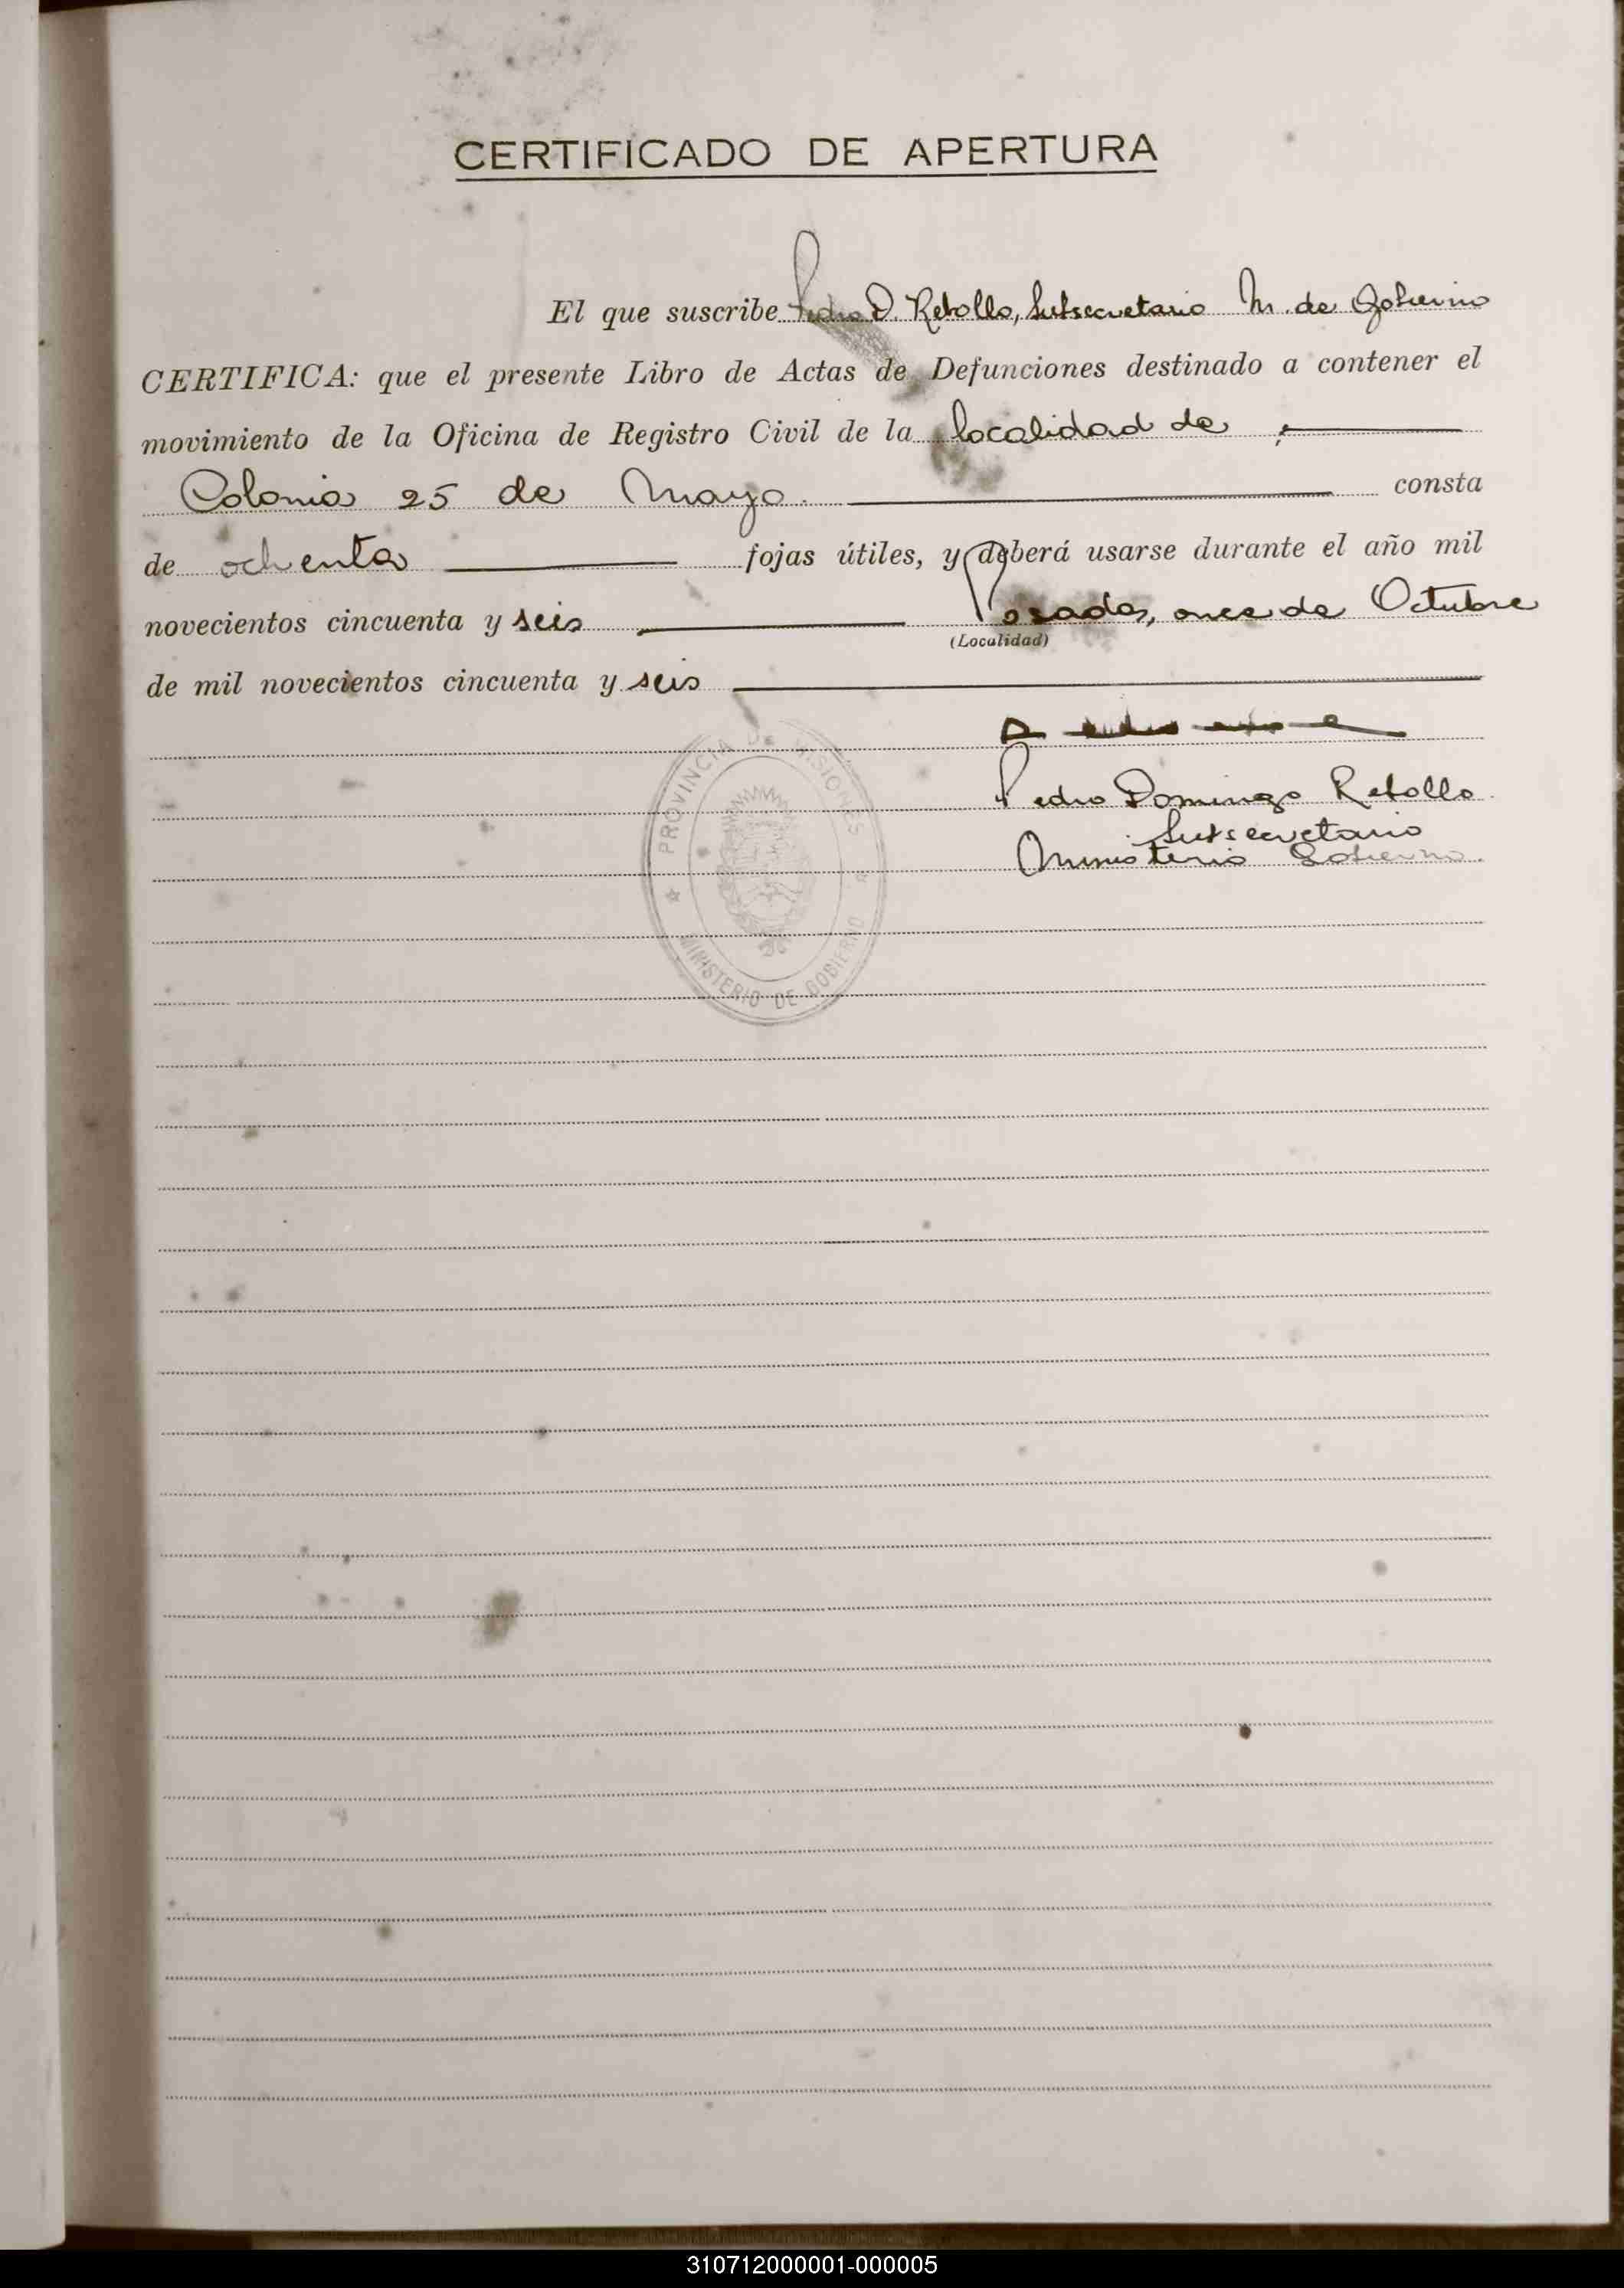 CERTIFICADO DE APERTURA
El que suscribe Pedro D. Rebollo, Subsecretario M. de Gobierno
CERTIFICA: que el presente Libro de Actas de Defunciones destinado a contener el
movimiento de la Oficina de Registro Civil de la localidad de
Colonia 25 de Mayo. consta
de ochenta fojas útiles, y deberá usarse durante el año mil
novecientos cincuenta y seis Posadas, once de Octubre
(Localidad)
de mil novecientos cincuenta y seis
PROVINCIA DE MISIONES
MINISTERIO DE GOBIERNO
Pedro Domingo Rebollo
Subsecretario
Ministerio Gobierno.
310712000001-000005